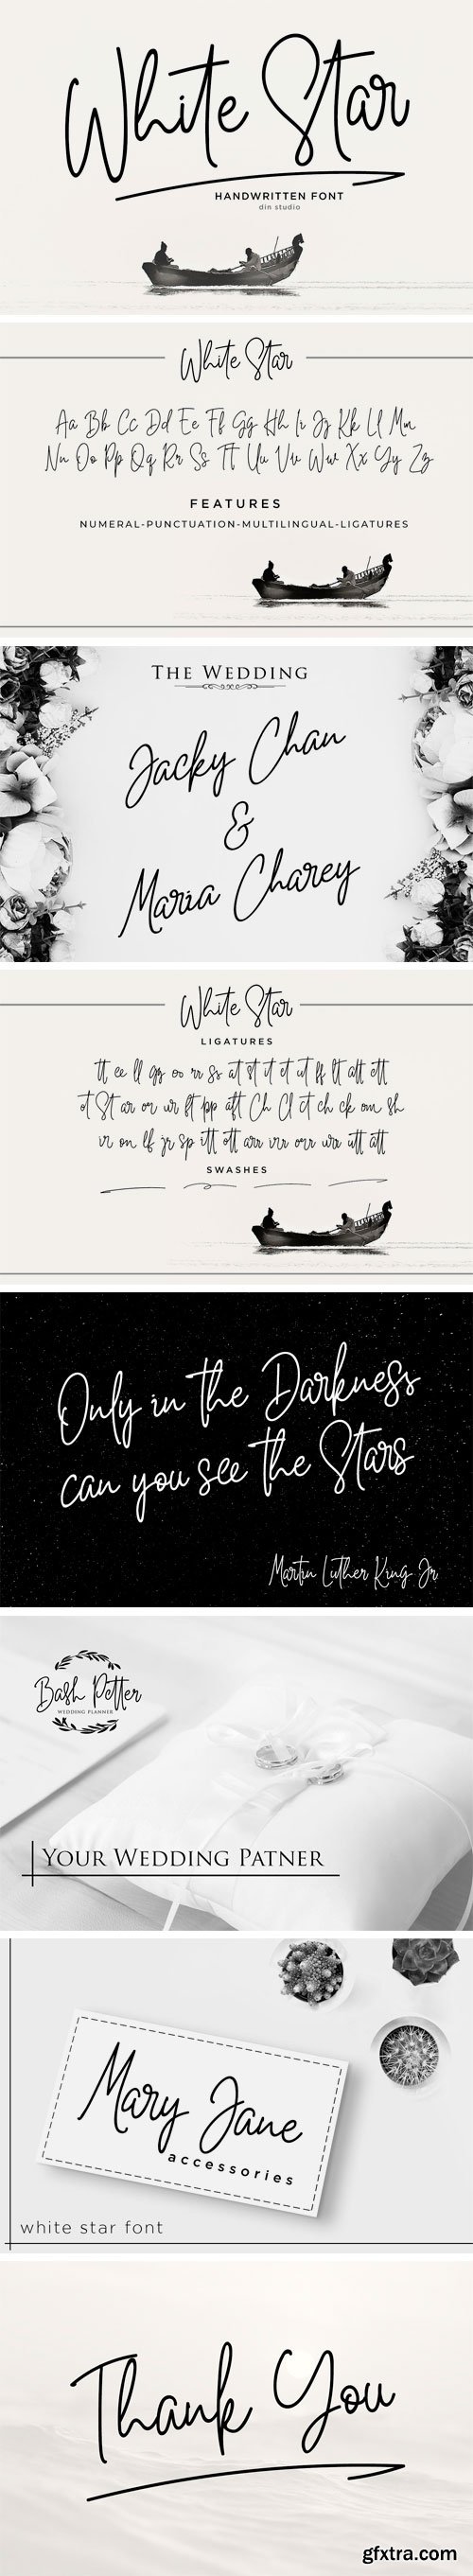 White Star
HANDWRITTEN FONT
din studio
White Star
Aa Bb Cc Dd Ee Ff Gg Hh Ii Jj Kk Ll Mm
Nn Oo Pp Qq Rr Ss Tt Uu Vv Ww Xx Yy Zz
FEATURES
NUMERAL-PUNCTUATION-MULTILINGUAL-LIGATURES
THE WEDDING
Jacky Chan
&
Maria Charey
White Star
LIGATURES
tt ee ll gg oo rr ss at st it et ut ff lt att ett
ot St ar or ur ft pp aft Ch Cl ct ch ck om sh
ir on lf jr sp itt ott arr irr orr urr utt
SWASHES
Only in the Darkness
can you see the Stars
Martin Luther King Jr
Bash Petter
WEDDING PLANNER
YOUR WEDDING PATNER
Mary Jane
accessories
white star font
Thank You
gfxtra.com